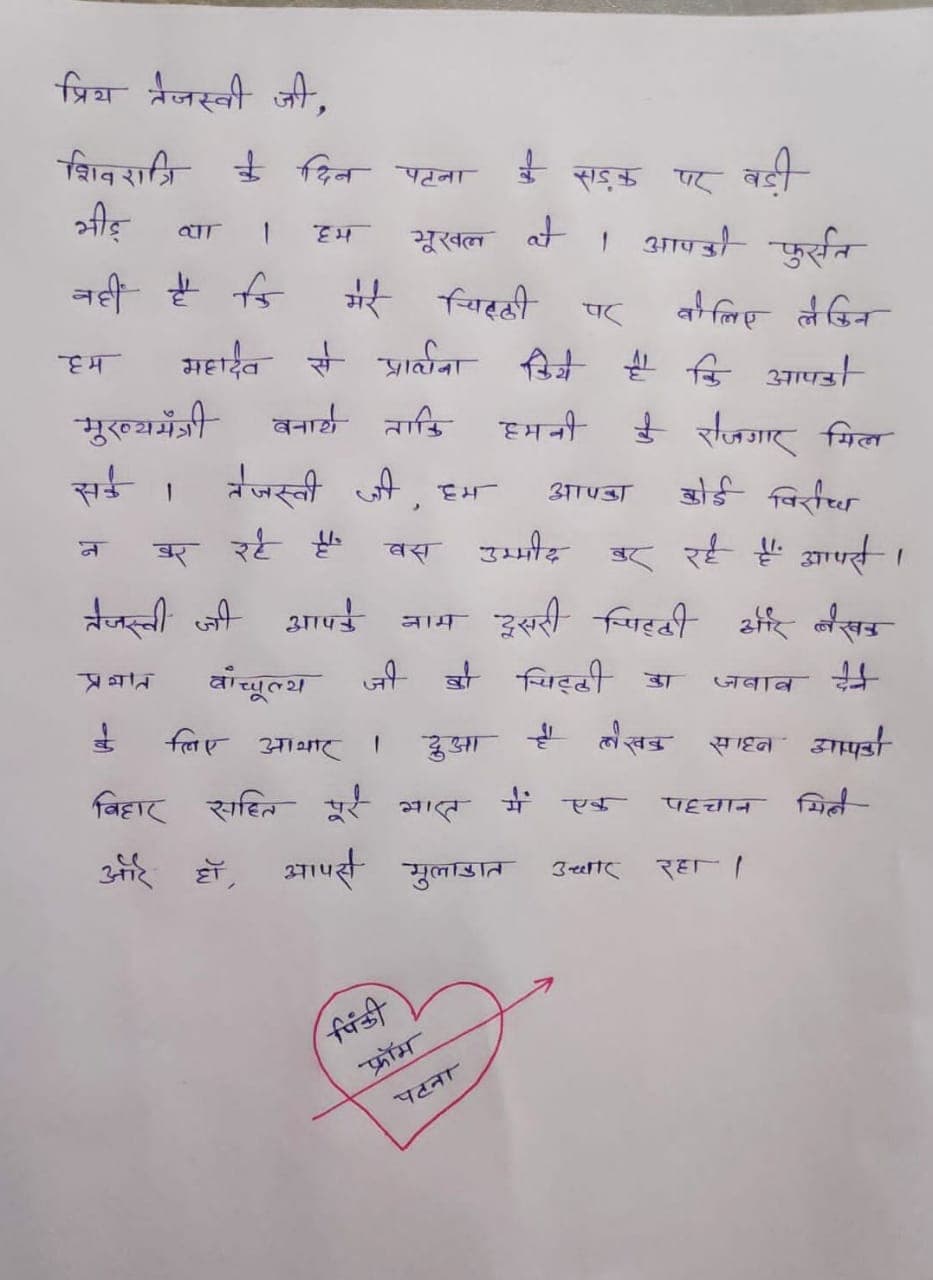 प्रिय तेजस्वी जी,
शिवरात्रि के दिन पटना के सड़क पर बड़ी
भीड़ था । हम भूखल थे । आपको फुर्सत
नहीं है कि मेरे चिट्ठी पर बोलिए लेकिन
हम महादेव से प्रार्थना किये है कि आपको
मुख्यमंत्री बनाये ताकि हमनी के रोजगार मिल
सके । तेजस्वी जी, हम आपका कोई विरोध
न कर रहे हैं बस उम्मीद कर रहे हैं आपसे ।
तेजस्वी जी आपके नाम दूसरी चिट्ठी और लेखक
प्रभात बांधूल्य जी को चिट्ठी का जवाब देने
के लिए आभार । दुआ है लेखक साहब आपको
बिहार सहित पूरे भारत में एक पहचान मिले
और हाँ, आपसे मुलाकात उधार रहा ।
पिंकी
फ्रॉम
पटना